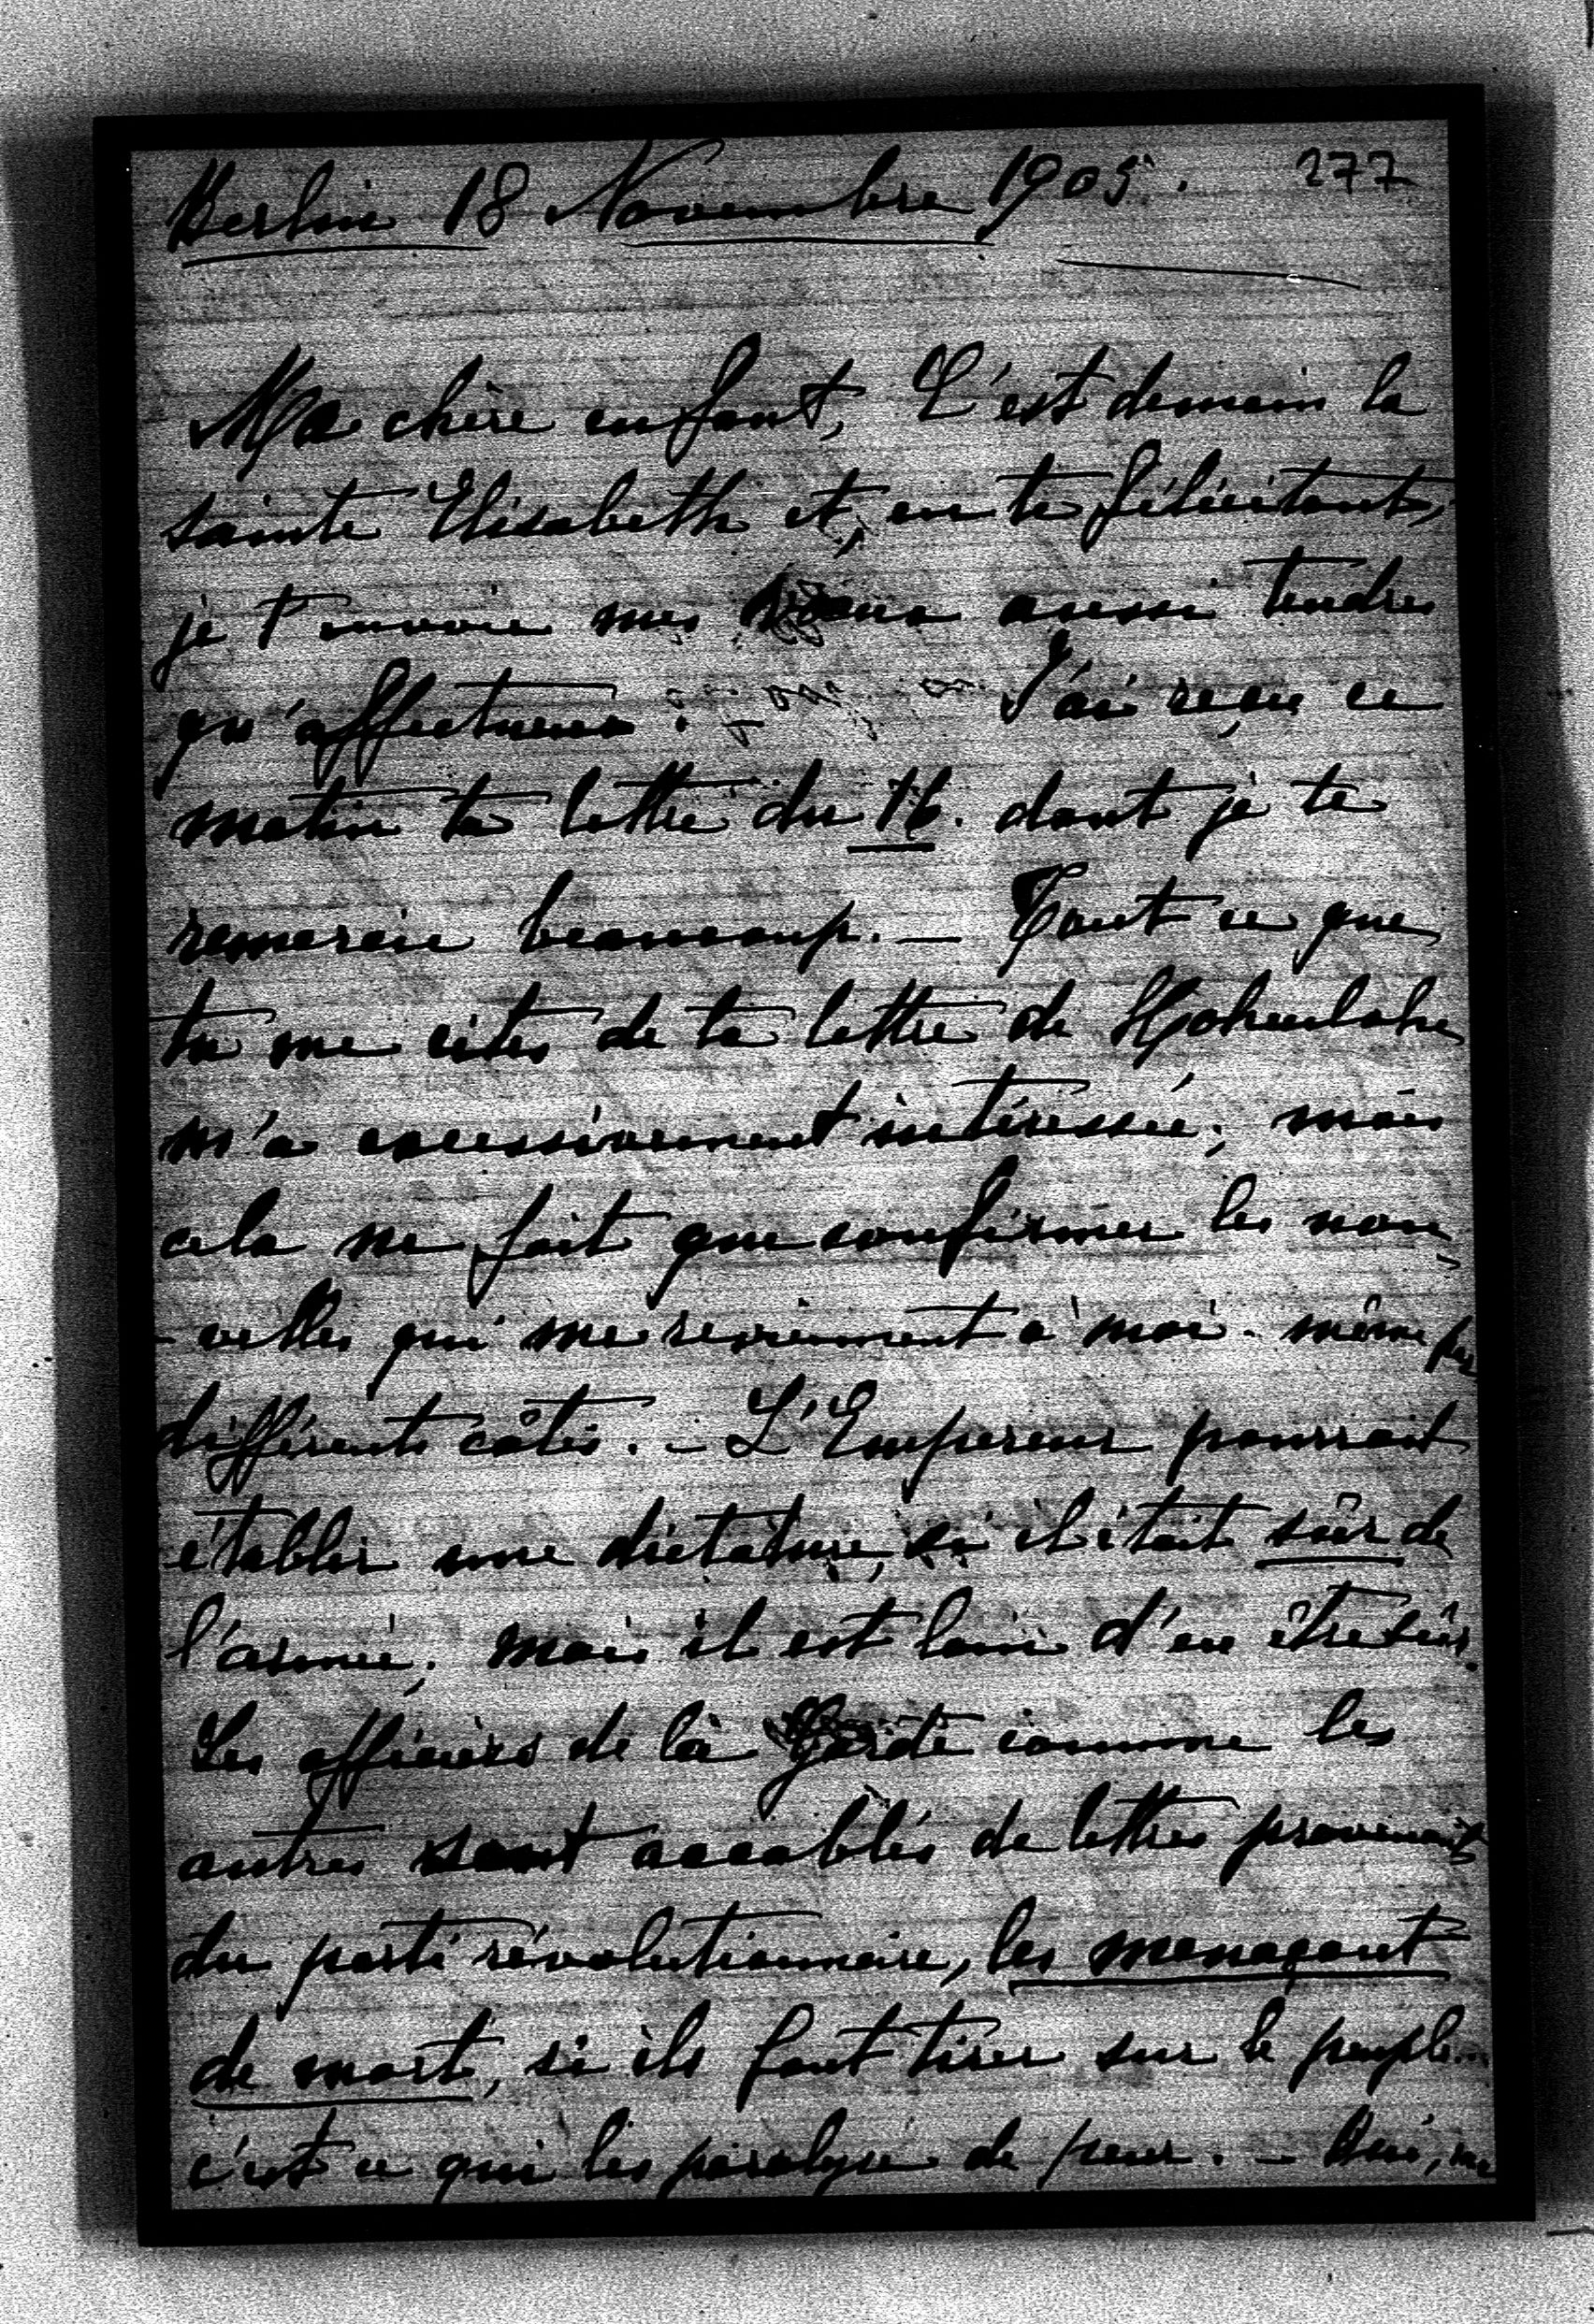 Berlin 18 Novembre 1905. 277
Ma chère enfant, C'est demain la
sainte Elisabeth et, en te félicitant,
je t'envoie mes vœux aussi tendres
qu'affectueux : — J'ai reçu ce
matin ta lettre du 16. dont je te
remercie beaucoup. — Tout ce que
tu me cites de ta lettre de Hohenlohe
m'a excessivement intéressée; mais
cela ne fait que confirmer les nou-
-velles qui me reviennent à moi-même par
différents côtés. — L'Empereur pourrait
établir une dictature, si il était sûr de
l'armée; mais il est loin d'en être sûr.
Les officiers de la Garde comme les
autres sont accablés de lettres provenant
du parti révolutionnaire, les menaçant
de mort, si ils font tirer sur le peuple...
c'est ce qui les paralyse de peur. — Oui, ma